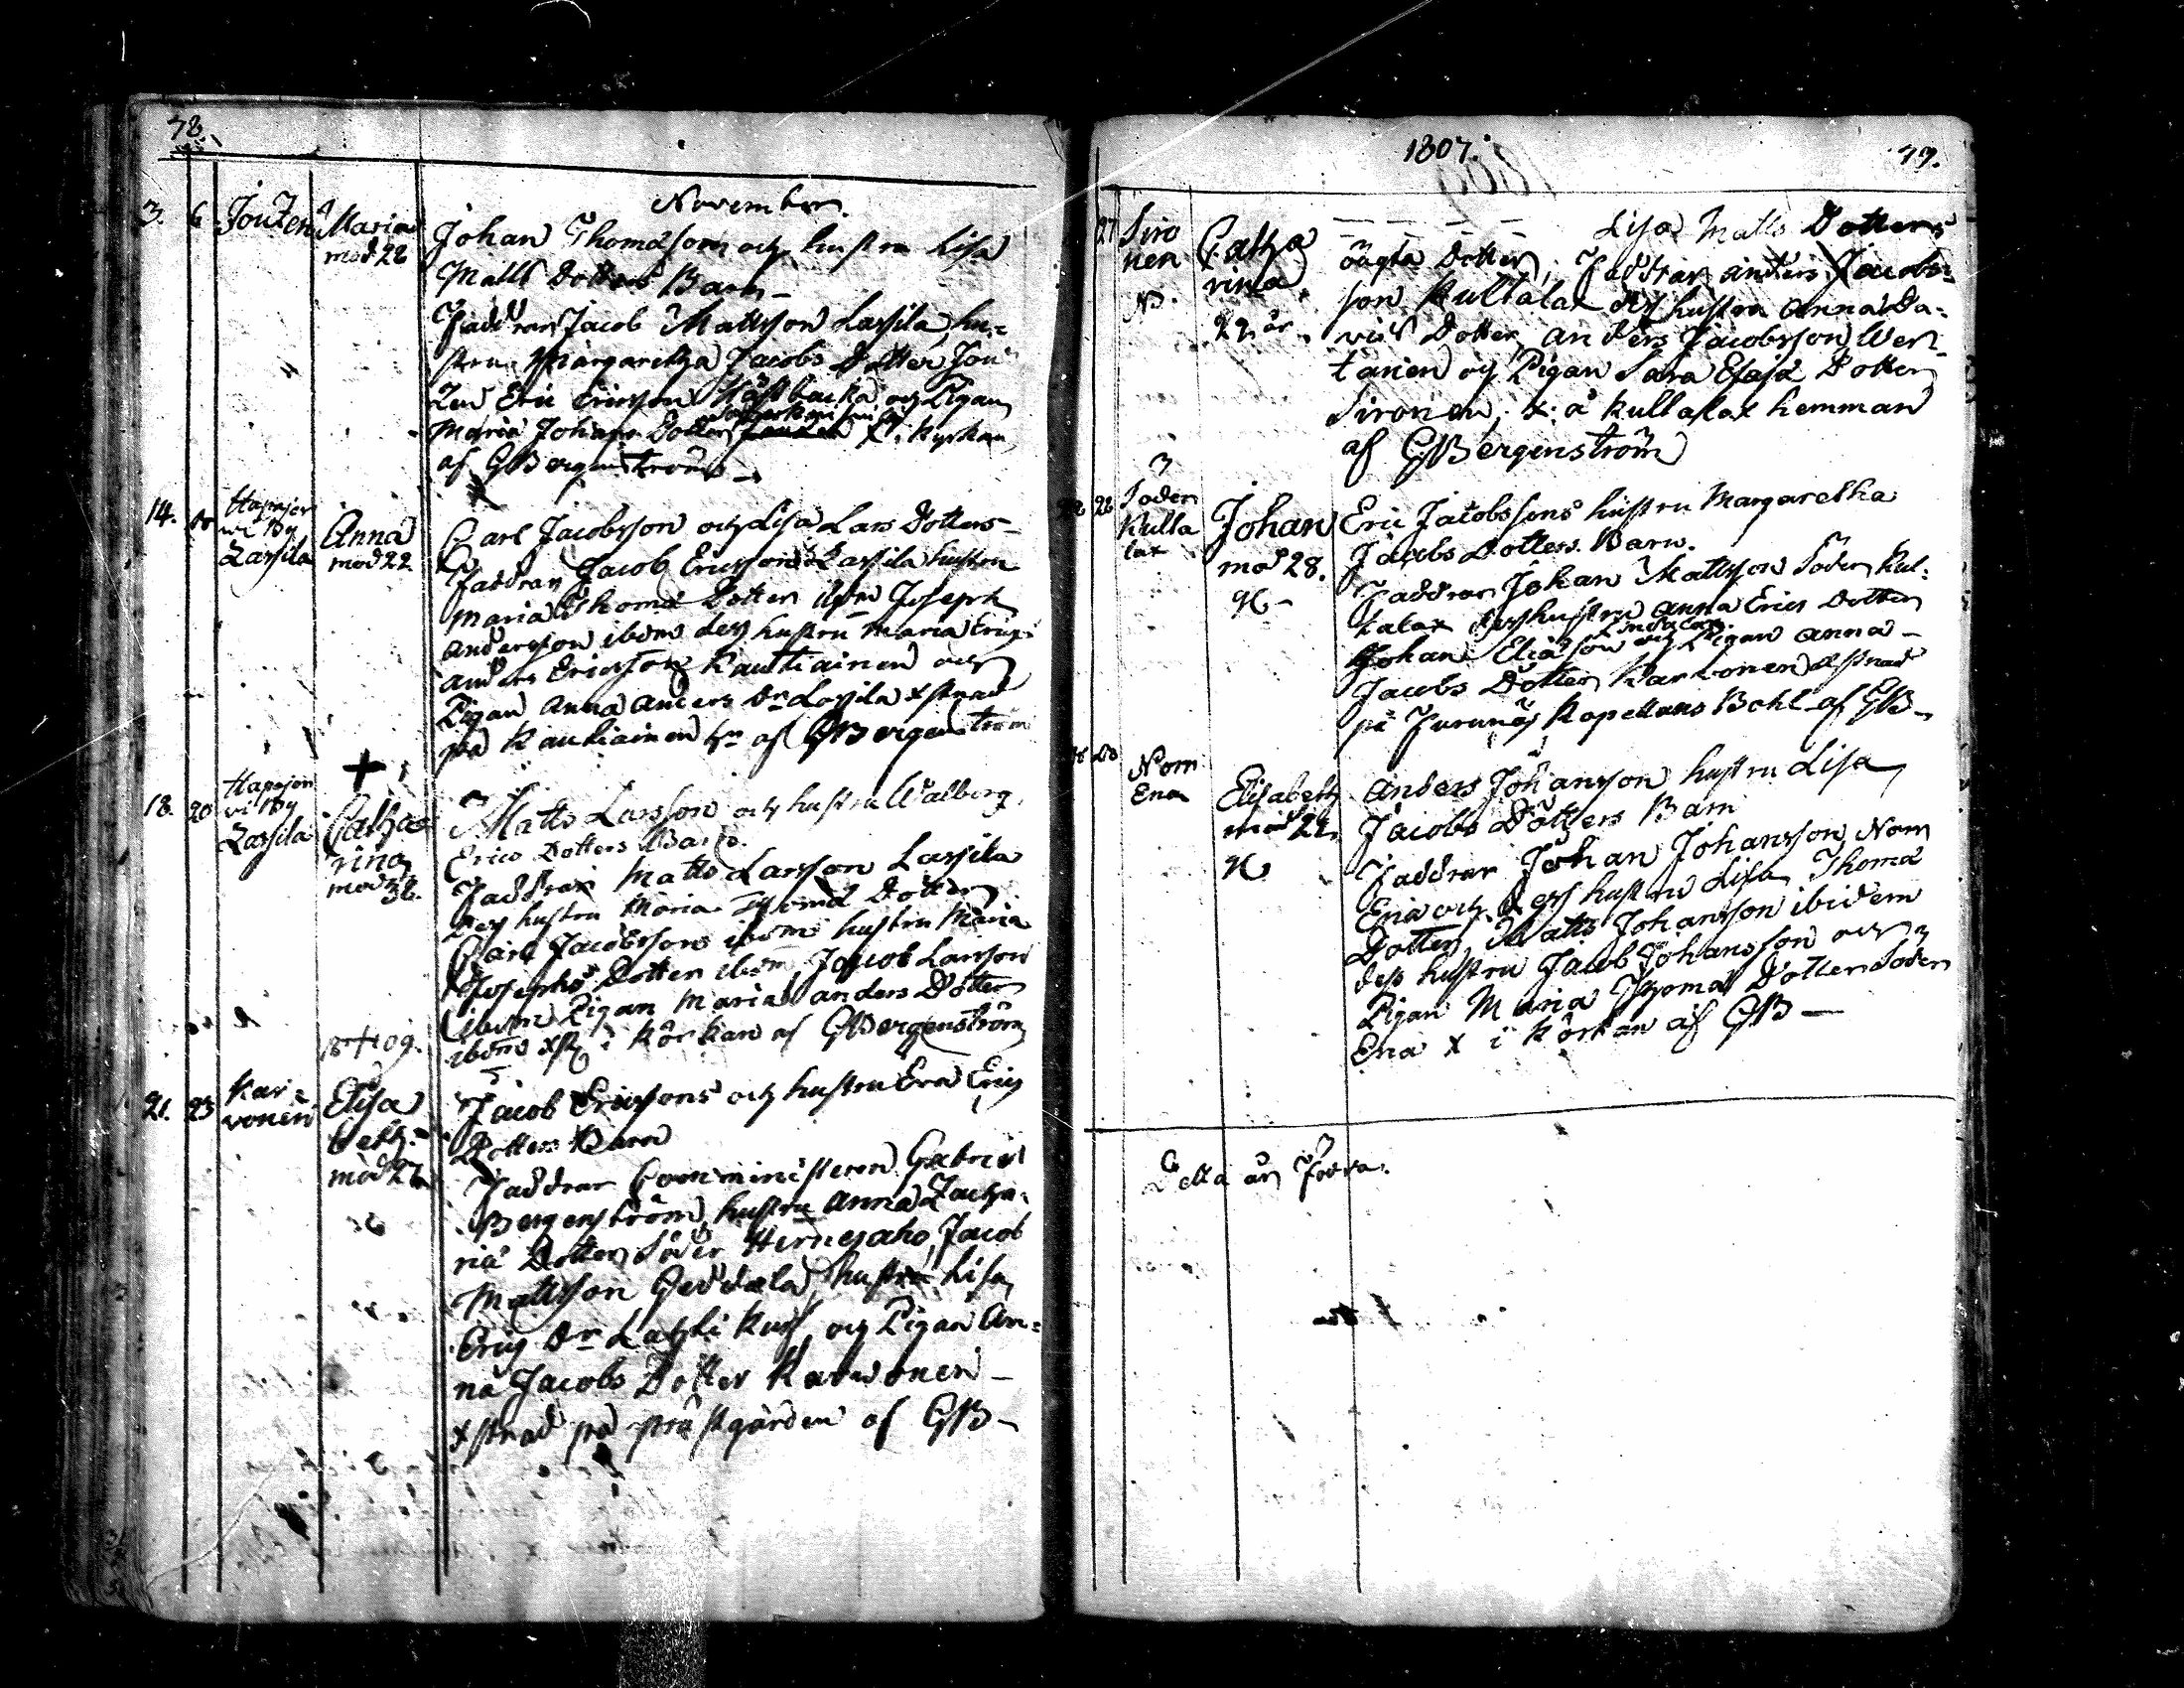 78.
November.
3. 6 Jouzen Maria Johan Thomasson och hustru Lisa
mod 22 Matts Dotters Barn
Faddrar Jacob Mattsson Lassila, hu-
stru Margaretha Jacobs Dotter Jou
zen Eric Ericsson Härbacka och Pigan
Maria Johans Dotter x i Kyrkan
af GBergenström
14. Hapajer
vi By
Lassila Anna Carl Jacobsson och Lisa Lars Dotters
mod 22. Faddrar Jacob Ericsson Lassila hustru
Maria Thomæ Dotter ibm Joseph
Andersson ibdm dess hustru Maria Erics
Anders Ericsson Kautiainen och
Pigan Anna Anders Dr Lassila xstnad
på Kautiainen hn af GBergenström
+
18. 20 Hapajer
vi By
Lassila Catha
rina
mod 32. Matts Larsson och hustru Walborg
Erics Dotters Barn.
Faddrar Matts Larsson Lassila
dess hustru Maria Thomæ Dotter
Carl Jacobsson ibdm hustru Maria
Josephs Dotter ibdm Jacob Larsson
ibdm Pigan Maria Anders Dotter
ibdm xst i Körkan af GBergenström
18+09.
21. 23 Kar-
vonen Elisa
beth
mod 27 Jacob Ericssons och hustru Eva Erics
Dotters Barn
Faddrar Comministeren Gabriel
Bergenström, hustru Anna Zacha-
riæ Dotter Söder Hirnesaho, Jacob
Mattsson Geddala, hustru Lisa
Erics Dr och Pigan An-
na Jacobs Dotter Karvonen
xstnad på prästgården af GB
1807. 79.
27 Siro
nen
NB. Catha
rina
22 år. Lisa Matts Dotters
oägta Dotter, Faddrar Anders Jacobs-
son Kullalax dess hustru Anna Da-
vid Dotter, Anders Jacobsson Wer-
tanen och Pigan Sara Esaiæ Dotter
Sironen, x å Kullalax hemman
af GBergenström
26 Söder
Kulla
lax Johan
mod 28. Eric Jacobssons hustru Margaretha
Jacobs Dotters Barn.
Faddrar Johan Mattsson Söder Kul-
lalax dess hustru Anna Erics Dotter
Johan Eliasson och Pigan Anna
Jacobs Dotter Karvonen xstnad
på Jurunäs Kapellans Bohl af GB
Nom
Ena Elisabeth
mod 22. Anders Johansson hustru Lisa
Jacobs Dotters Barn
Faddrar Johan Johansson Nom
Ena och dess hustru Lisa Thomæ
Dotter, Matts Johansson ibidem
dess hustru Jacob Johansson och
Pigan Maria Thomæ Dotter Söder
Ena x i Körkan af GB
Detta år födda.